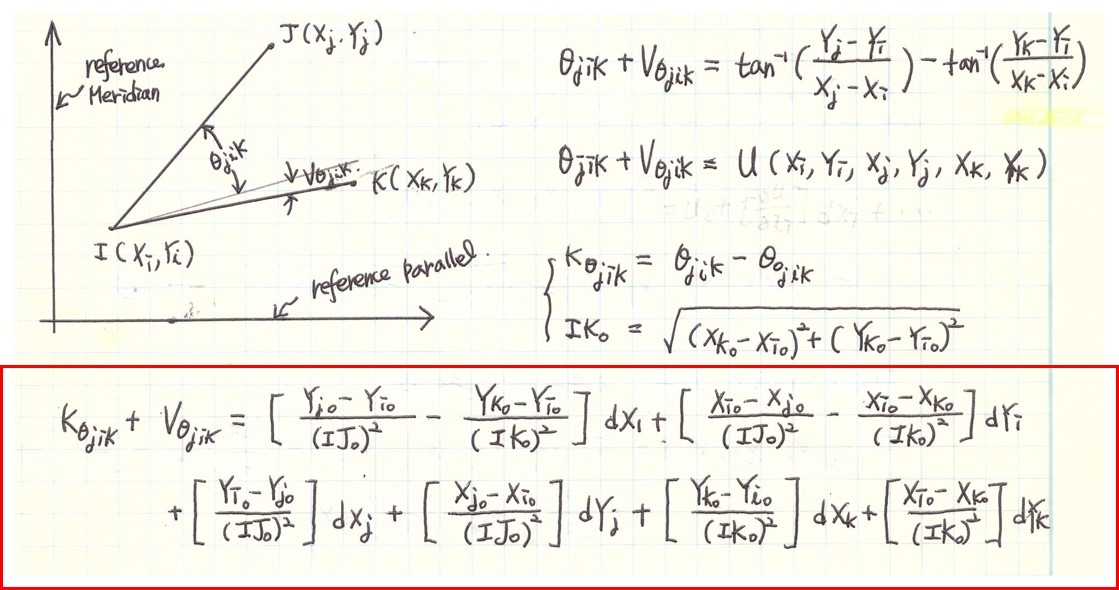 J(Xj, Yj)
reference
Meridian
θjik
Vθjik
K(XK, YK)
I(Xi, Yi)
reference parallel.
θjik + Vθjik = tan⁻¹((Yj - Yi)/(Xj - Xi)) - tan⁻¹((YK - Yi)/(XK - Xi))
θjik + Vθjik = U(Xi, Yi, Xj, Yj, XK, YK)
Kθjik = θjik - θojik
IKo = √((XKo - Xio)² + (YKo - Yio)²)
Kθjik + Vθjik = [(Yjo - Yio)/(IJo)² - (YKo - Yio)/(IKo)²] dXi + [(Xio - Xjo)/(IJo)² - (Xio - XKo)/(IKo)²] dYi
+ [(Yio - Yjo)/(IJo)²] dXj + [(Xjo - Xio)/(IJo)²] dYj + [(YKo - Yio)/(IKo)²] dXK + [(Xio - XKo)/(IKo)²] dYK